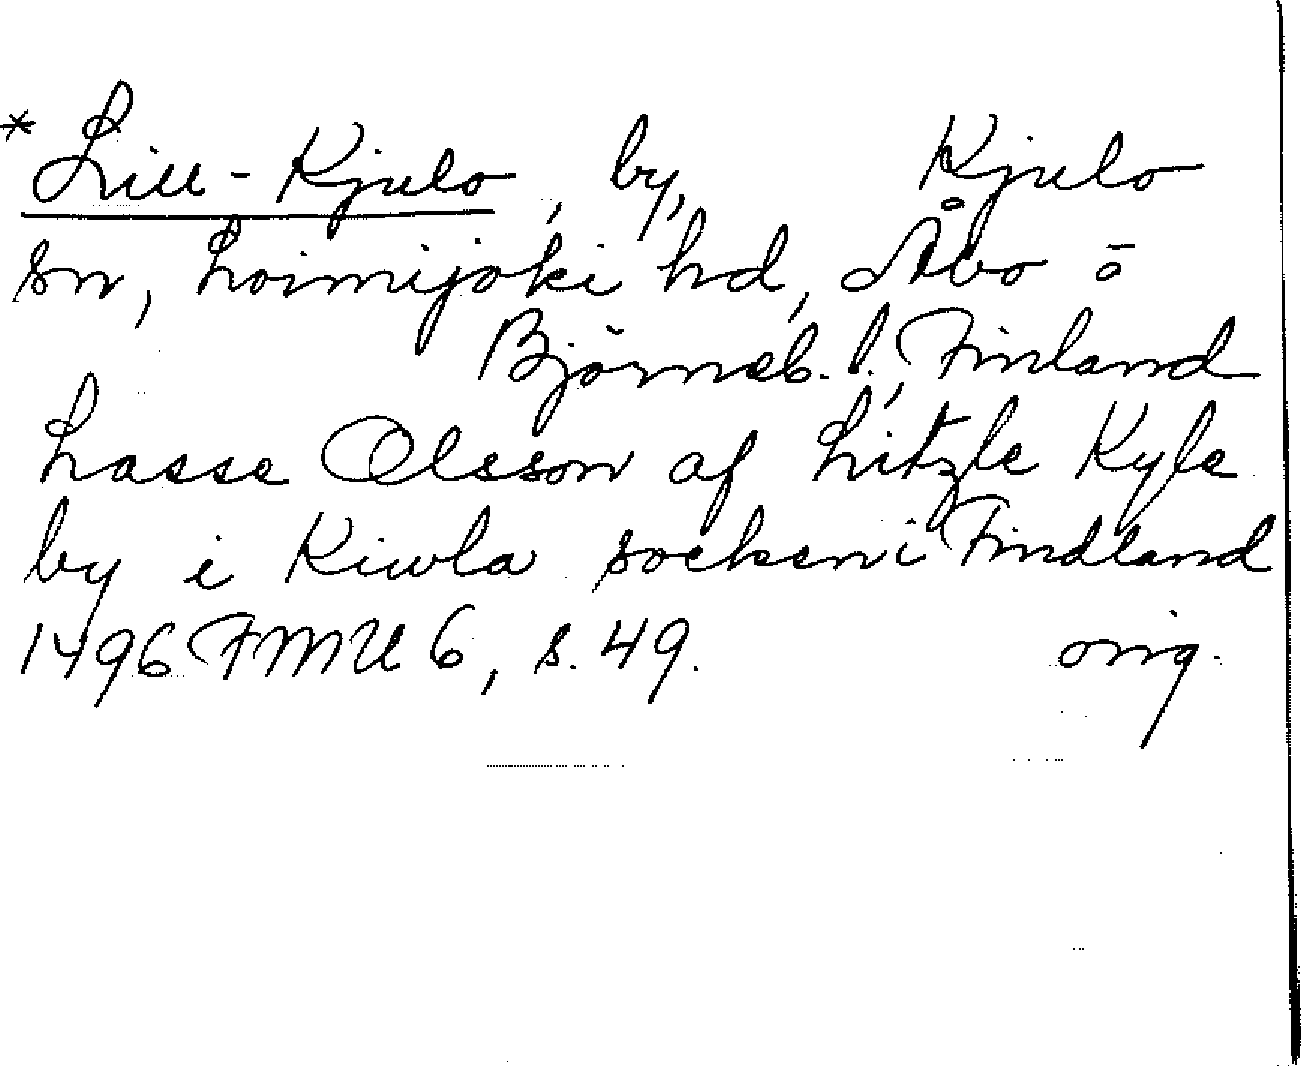 * Lill-Kjulo, by, Kjulo
sn, Loimijoki hd, Åbo o
Björneb. l., Finland
Lasse Olsson af Litzle Kyle
by i Kiwla socken i Findland
1496 FMU 6, s. 49. orig.